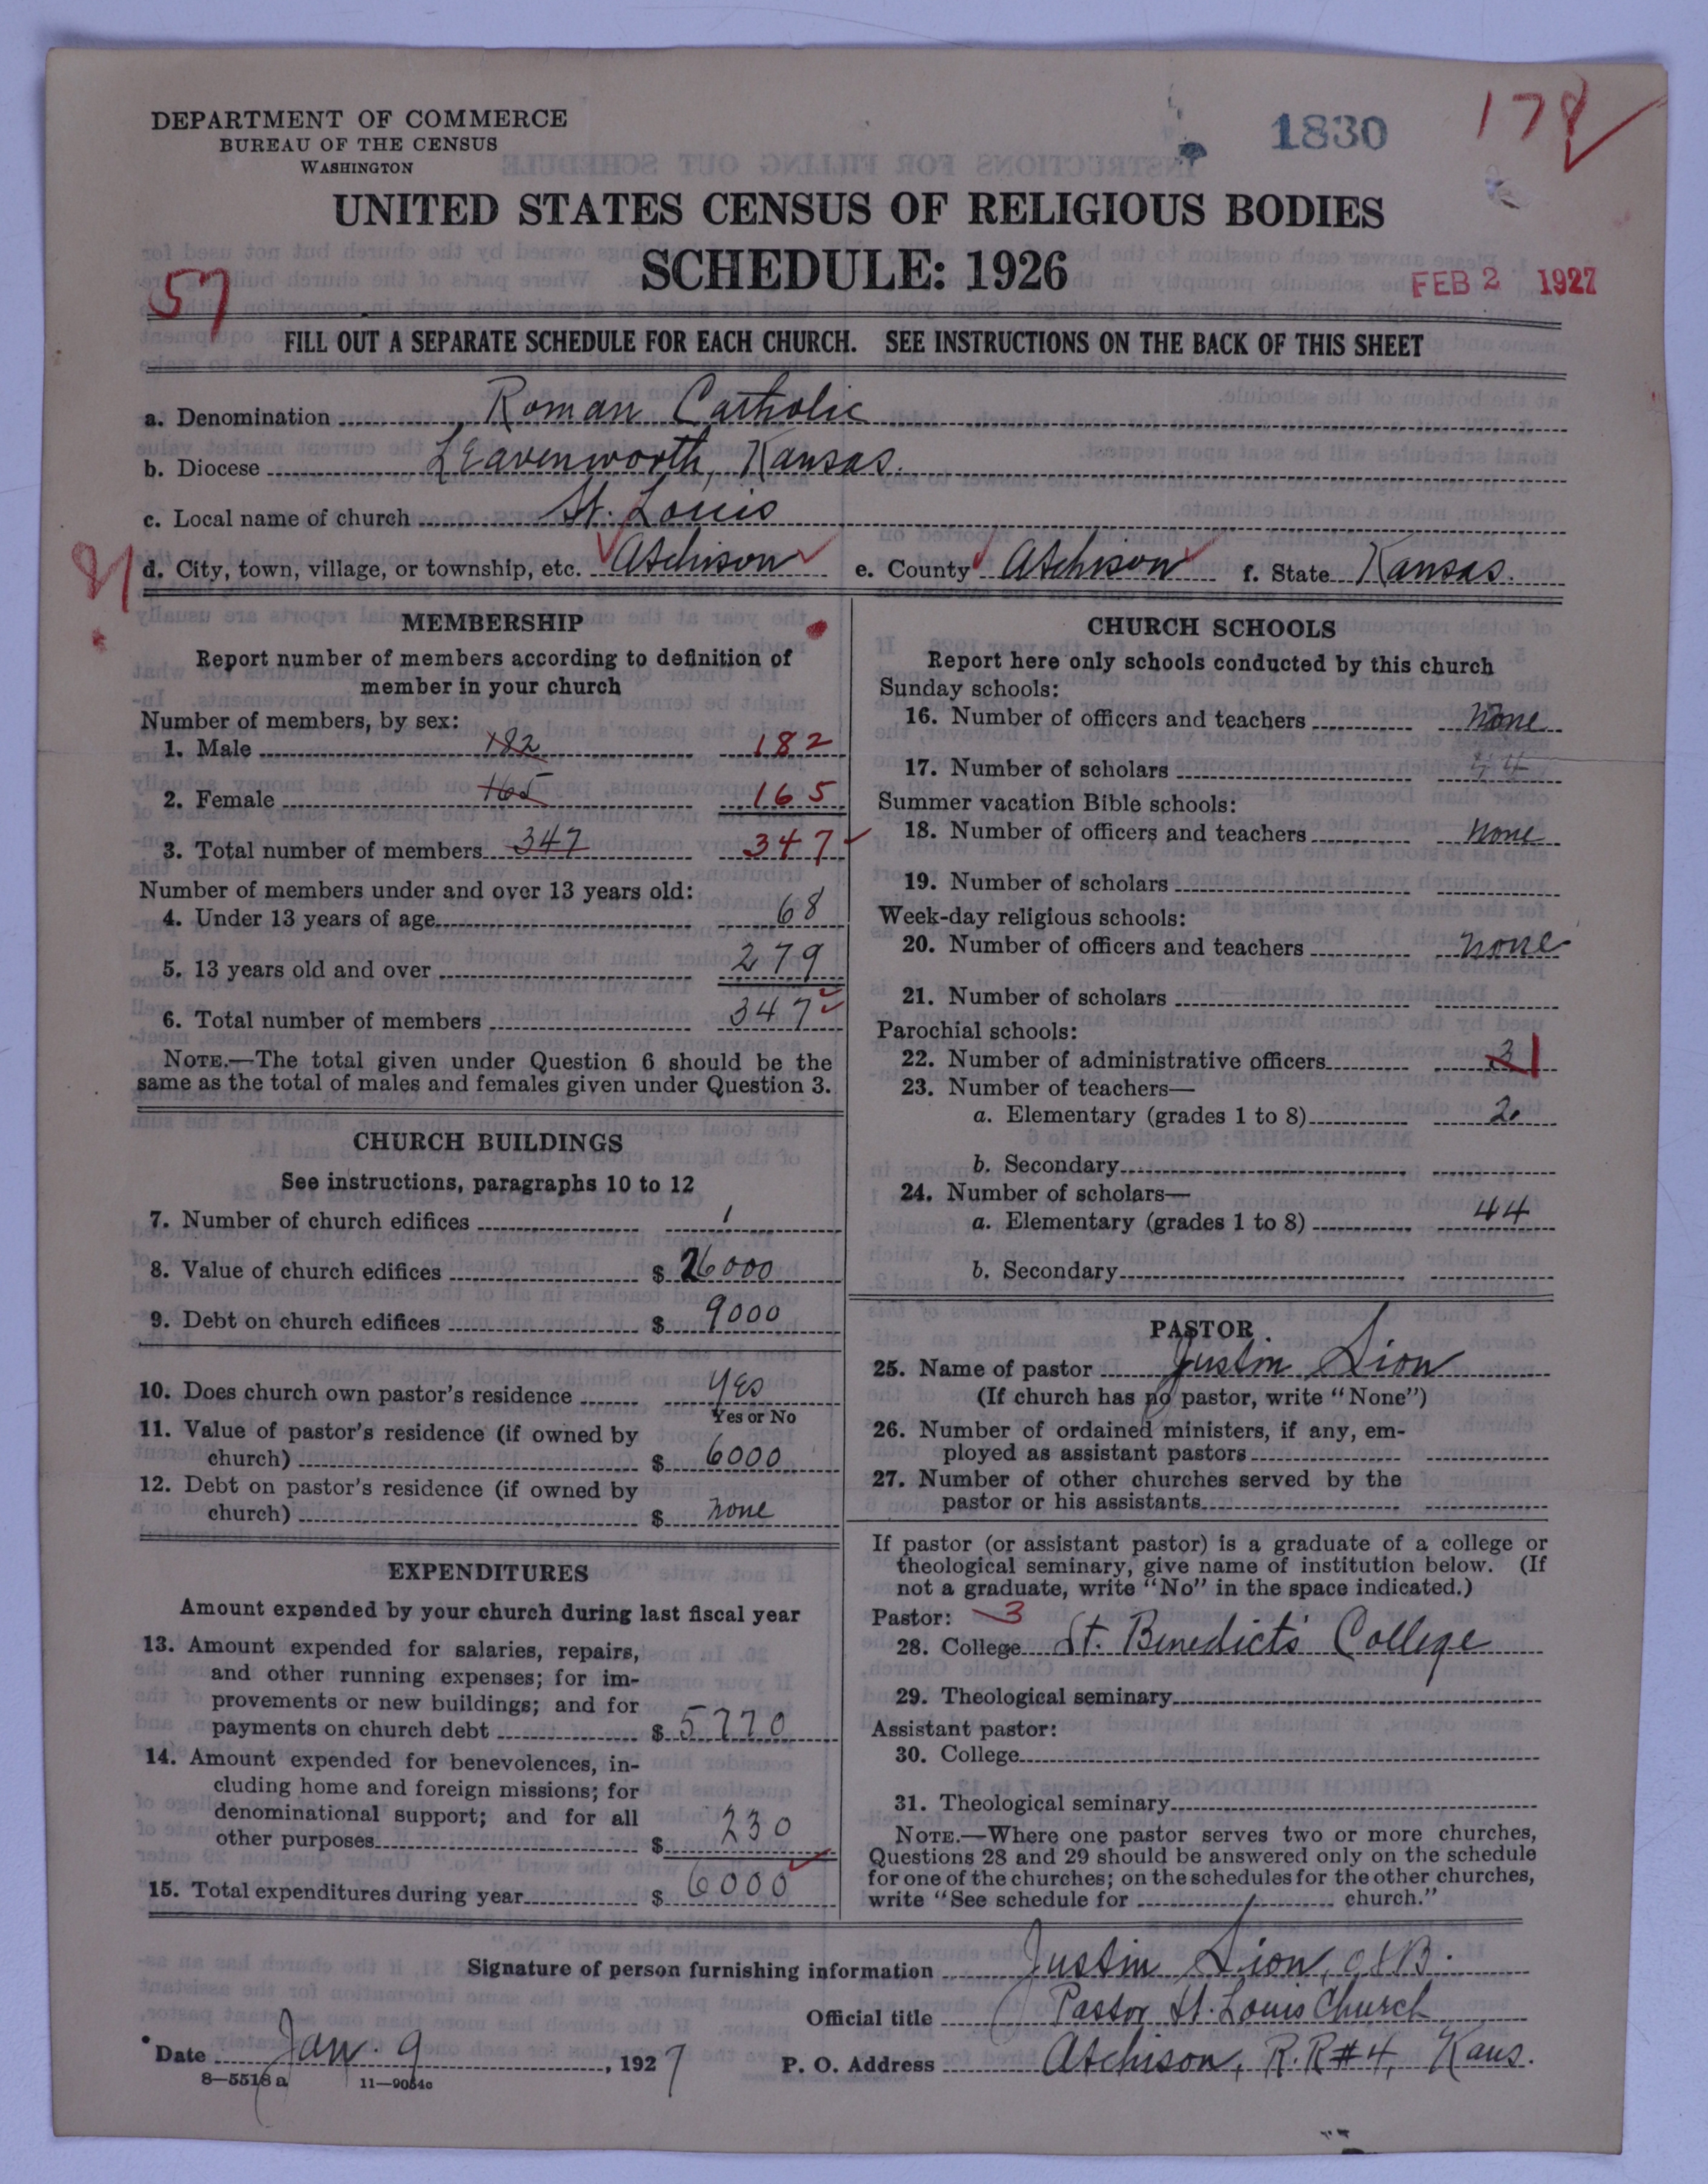 DEPARTMENT OF COMMERCE
BUREAU OF THE CENSUS
WASHINGTON
1830
178
UNITED STATES CENSUS OF RELIGIOUS BODIES
SCHEDULE: 1926
57
FEB 2 1927
FILL OUT A SEPARATE SCHEDULE FOR EACH CHURCH. SEE INSTRUCTIONS ON THE BACK OF THIS SHEET
a. Denomination Roman Catholic
b. Diocese Leavenworth, Kansas.
c. Local name of church St. Louis
d. City, town, village, or township, etc. Atchison e. County Atchison f. State Kansas.
MEMBERSHIP
Report number of members according to definition of
member in your church
Number of members, by sex:
1. Male 182 182
2. Female 165 165
3. Total number of members 347 347
Number of members under and over 13 years old:
4. Under 13 years of age 68
5. 13 years old and over 279
6. Total number of members 347
NOTE.—The total given under Question 6 should be the
same as the total of males and females given under Question 3.
CHURCH BUILDINGS
See instructions, paragraphs 10 to 12
7. Number of church edifices 1
8. Value of church edifices $ 26000
9. Debt on church edifices $ 9000
10. Does church own pastor's residence Yes
Yes or No
11. Value of pastor's residence (if owned by
church) $ 6000
12. Debt on pastor's residence (if owned by
church) $ none
EXPENDITURES
Amount expended by your church during last fiscal year
13. Amount expended for salaries, repairs,
and other running expenses; for im-
provements or new buildings; and for
payments on church debt $ 5770
14. Amount expended for benevolences, in-
cluding home and foreign missions; for
denominational support; and for all
other purposes $ 230
15. Total expenditures during year $ 6000
CHURCH SCHOOLS
Report here only schools conducted by this church
Sunday schools:
16. Number of officers and teachers none
17. Number of scholars 44
Summer vacation Bible schools:
18. Number of officers and teachers none
19. Number of scholars
Week-day religious schools:
20. Number of officers and teachers none
21. Number of scholars
Parochial schools:
22. Number of administrative officers 3 1
23. Number of teachers—
a. Elementary (grades 1 to 8) 2.
b. Secondary
24. Number of scholars—
a. Elementary (grades 1 to 8) 44
b. Secondary
PASTOR
25. Name of pastor Justin Sion
(If church has no pastor, write "None")
26. Number of ordained ministers, if any, em-
ployed as assistant pastors
27. Number of other churches served by the
pastor or his assistants
If pastor (or assistant pastor) is a graduate of a college or
theological seminary, give name of institution below. (If
not a graduate, write "No" in the space indicated.)
Pastor: 3
28. College St. Benedict's College
29. Theological seminary
Assistant pastor:
30. College
31. Theological seminary
NOTE.—Where one pastor serves two or more churches,
Questions 28 and 29 should be answered only on the schedule
for one of the churches; on the schedules for the other churches,
write "See schedule for church."
Signature of person furnishing information Justin Sion, OSB.
Official title Pastor St. Louis Church
Date Jan. 9, 1927 P. O. Address Atchison, R.R #4, Kans.
8—5518 a 11—9054c